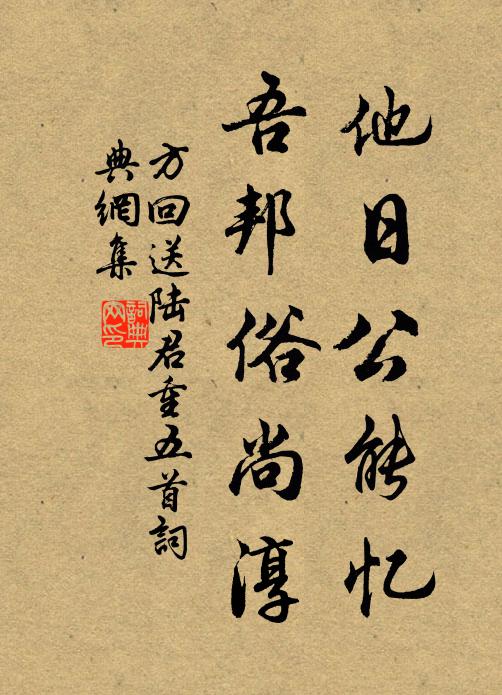 他日公能忆
吾邦俗尚淳
方回送陆君重五首詞
典網集
詞典
网印